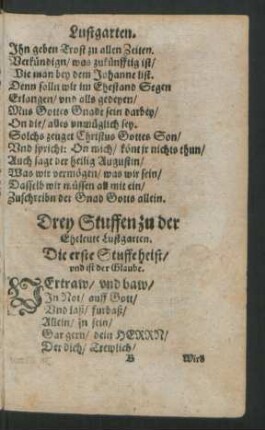 Lustgarten.
Ihn geben Trost zu allen Zeiten.
Verkündign/ was zukünfftig ist/
Wie man bey dem Johanne list.
Denn solln wir im Ehestand Segen
Erlangen/ vnd alls gedeyen/
Mus Gottes Gnade sein darbey/
On die/ alles vnmüglich sey.
Solchs zeuget Christus Gottes Son/
Vnd spricht: On mich/ könt jr nichts thun/
Auch sagt der heilig Augustin/
Was wir vermögen/ was wir sein/
Dasselb wir müssen all mit ein/
Zuschreibn der Gnad Gotts allein.
Drey Stuffen zu der
Eheleute Lustgarten.
Die erste Stuffe heist/
vnd ist der Glaube.
VErtraw/ vnd baw/
In Not/ auff Gott/
Vnd laß/ furbaß/
Allein/ zu sein/
Gar gern/ dein HERRN/
Der dich/ Trewlich/
B Wird